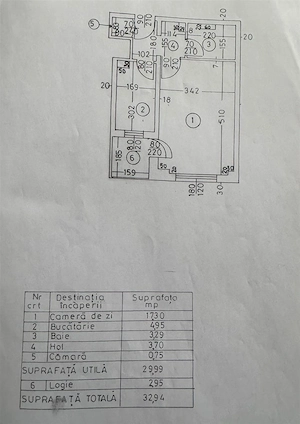 5
70
240
80
90
210
80
114
4
70
210
220
3
155
20
102
80
210
90
210
20
169
18
342
2
1
302
510
80
120
80
220
6
185
159
180
120
30
Nr crt Destinația încăperii Suprafața mp
1 Cameră de zi 17,30
2 Bucătărie 4,95
3 Baie 3,29
4 Hol 3,70
5 Cămară 0,75
SUPRAFAȚĂ UTILĂ 29,99
6 Logie 2,95
SUPRAFAȚĂ TOTALĂ 32,94